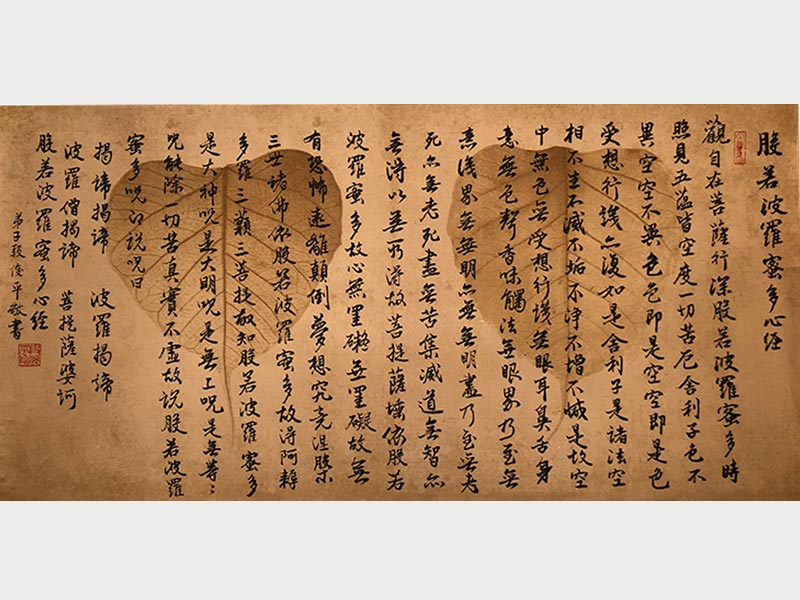 般若波羅蜜多心经
觀自在菩薩行深般若波羅蜜多時
照見五蘊皆空度一切苦厄舍利子色不
異空空不異色色即是空空即是色
受想行識亦復如是舍利子是諸法空
相不生不滅不垢不净不增不減是故空
中無色無受想行識無眼耳鼻舌身
意無色聲香味觸法無眼界乃至無
意識界無無明亦無無明盡乃至無老
死亦無老死盡無苦集滅道無智亦
無得以無所得故菩提薩埵依般若
波羅蜜多故心無罣礙無罣礙故無
有恐怖遠離顛倒夢想究竟涅槃
三世諸佛依般若波羅蜜多故得阿耨
多羅三藐三菩提故知般若波羅蜜多
是大神咒是大明咒是無上咒是無等々
咒能除一切苦真實不虛故說般若波羅
蜜多咒即說咒曰
揭諦揭諦 波羅揭諦
波羅僧揭諦 菩提薩婆訶
般若波羅蜜多心经
弟子段俊平敬書